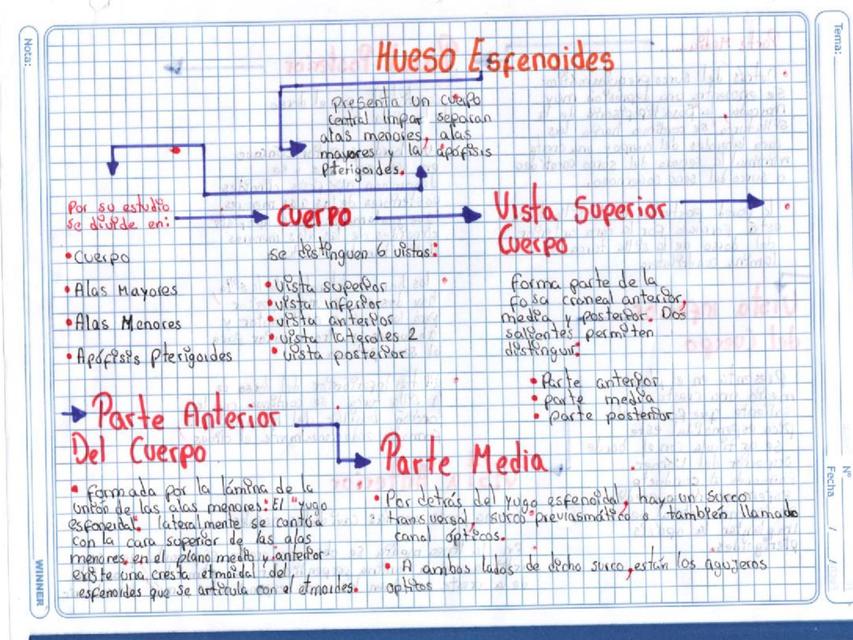 Nota:
Tema:
Hueso Esfenoides
Presenta un cuerpo
central impar separan
alas menores, alas
mayores y la apófisis
Pterigoides.
Por su estudio
se divide en:
• Cuerpo
• Alas Mayores
• Alas Menores
• Apófisis Pterigoides
Cuerpo
se distinguen 6 vistas:
• Vista superior
• vista inferior
• vista anterior
• vista laterales 2
• vista posterior
Vista Superior
Cuerpo
forma parte de la
fosa craneal anterior,
media y posterior. Dos
salientes permiten
distinguir:
• Parte anterior
• parte media
• parte posterior
Parte Anterior
Del Cuerpo
• formada por la lámina de la
unión de las alas menores: El "yugo
esfonerdal". lateralmente se contoúa
con la cara superior de las alas
menores, en el plano medio y anterior
existe una cresta etmoidal del
esfenoides que se articula con el etmoides.
Parte Media
• Por detrás del yugo esfenoidal, hay un surco
transversal, surco previasmático o también llamado
canal ópticos.
• A ambos lados de dicho surco, están los agujeros
optitos
WINNER
N°
Fecha / /